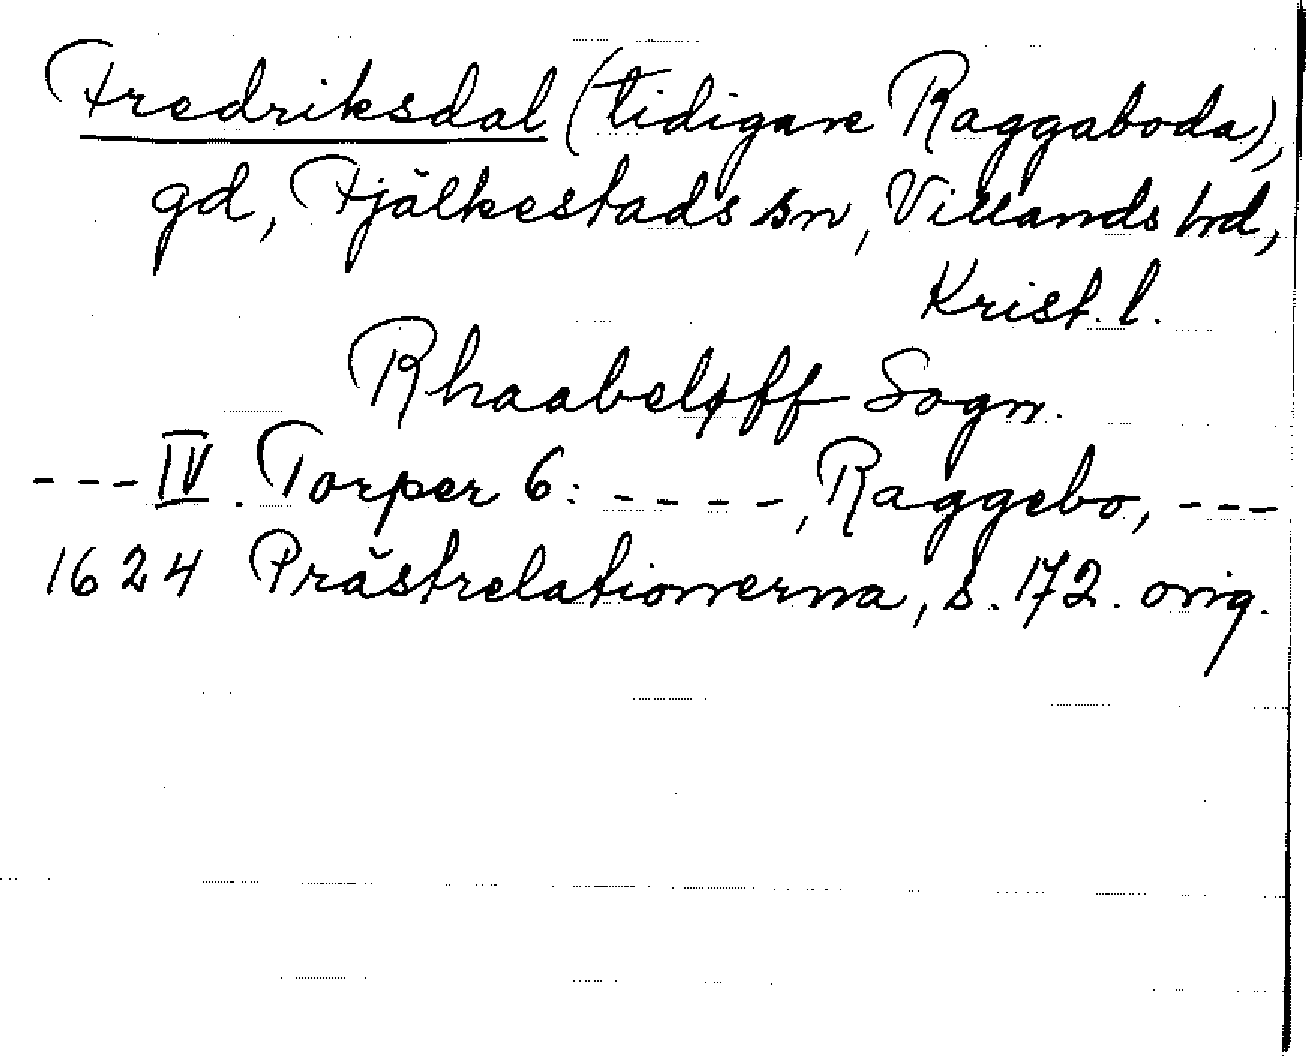 Fredriksdal (tidigare Raggaboda),
gd, Fjälkestads sn, Villands hd,
Krist. l.
Rhaabeløff Sogn.
--- IV. Torper 6: ----, Raggebo, ---
1624 Prästrelationerna, s. 172. orig.